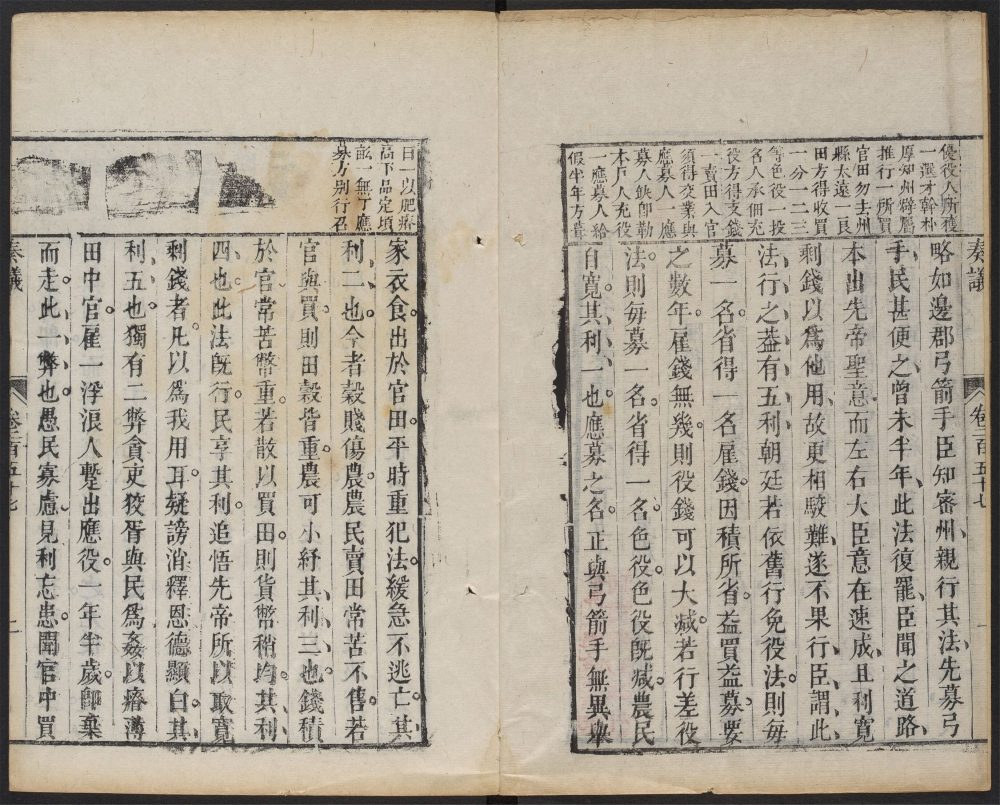 優役人所獲
一選才幹朴
厚知州辟屬
推行一所買
官田勿去州
縣太遠一良
田方得收買
一分一二三
等色役一投
名人承佃充
役方得支錢
一賣田入官
須得交業與
應募人一應
募人缺卽勒
本戶人充役
一應募人給
假半年方葺
奏議
卷二百五十七
略如邊郡弓箭手臣知審州親行其法先募弓
手民甚便之曾未半年此法復罷臣聞之道路
本出先帝聖意而左右大臣意在速成且利寬
剩錢以爲他用故更相駁難遂不果行臣謂此
法行之葢有五利朝廷若依舊行免役法則每
募一名省得一名雇錢因積所省益買益募要
之數年雇錢無幾則役錢可以大減若行差役
法則每募一名省得一名色役色役旣減農民
自寬其利一也應募之名正與弓箭手無異舉
曰一以肥瘠
高下品定頃
畝一無丁應
募方別行召
家衣食出於官田平時重犯法緩急不逃亡其
利二也今者穀賤傷農農民賣田常苦不售若
官與買則田穀皆重農可小紓其利三也錢積
於官常苦幣重若散以買田則貨幣稍均其利
四也此法旣行民享其利追悟先帝所以取寬
剩錢者凡以爲我用耳疑謗消釋恩德顯白其
利五也獨有二弊貪吏狡胥與民爲姦以瘠薄
田中官雇一浮浪人蹔出應役一年半歲卽棄
而走此一弊也愚民寡慮見利忘患聞官中買
奏議
卷二百五十七